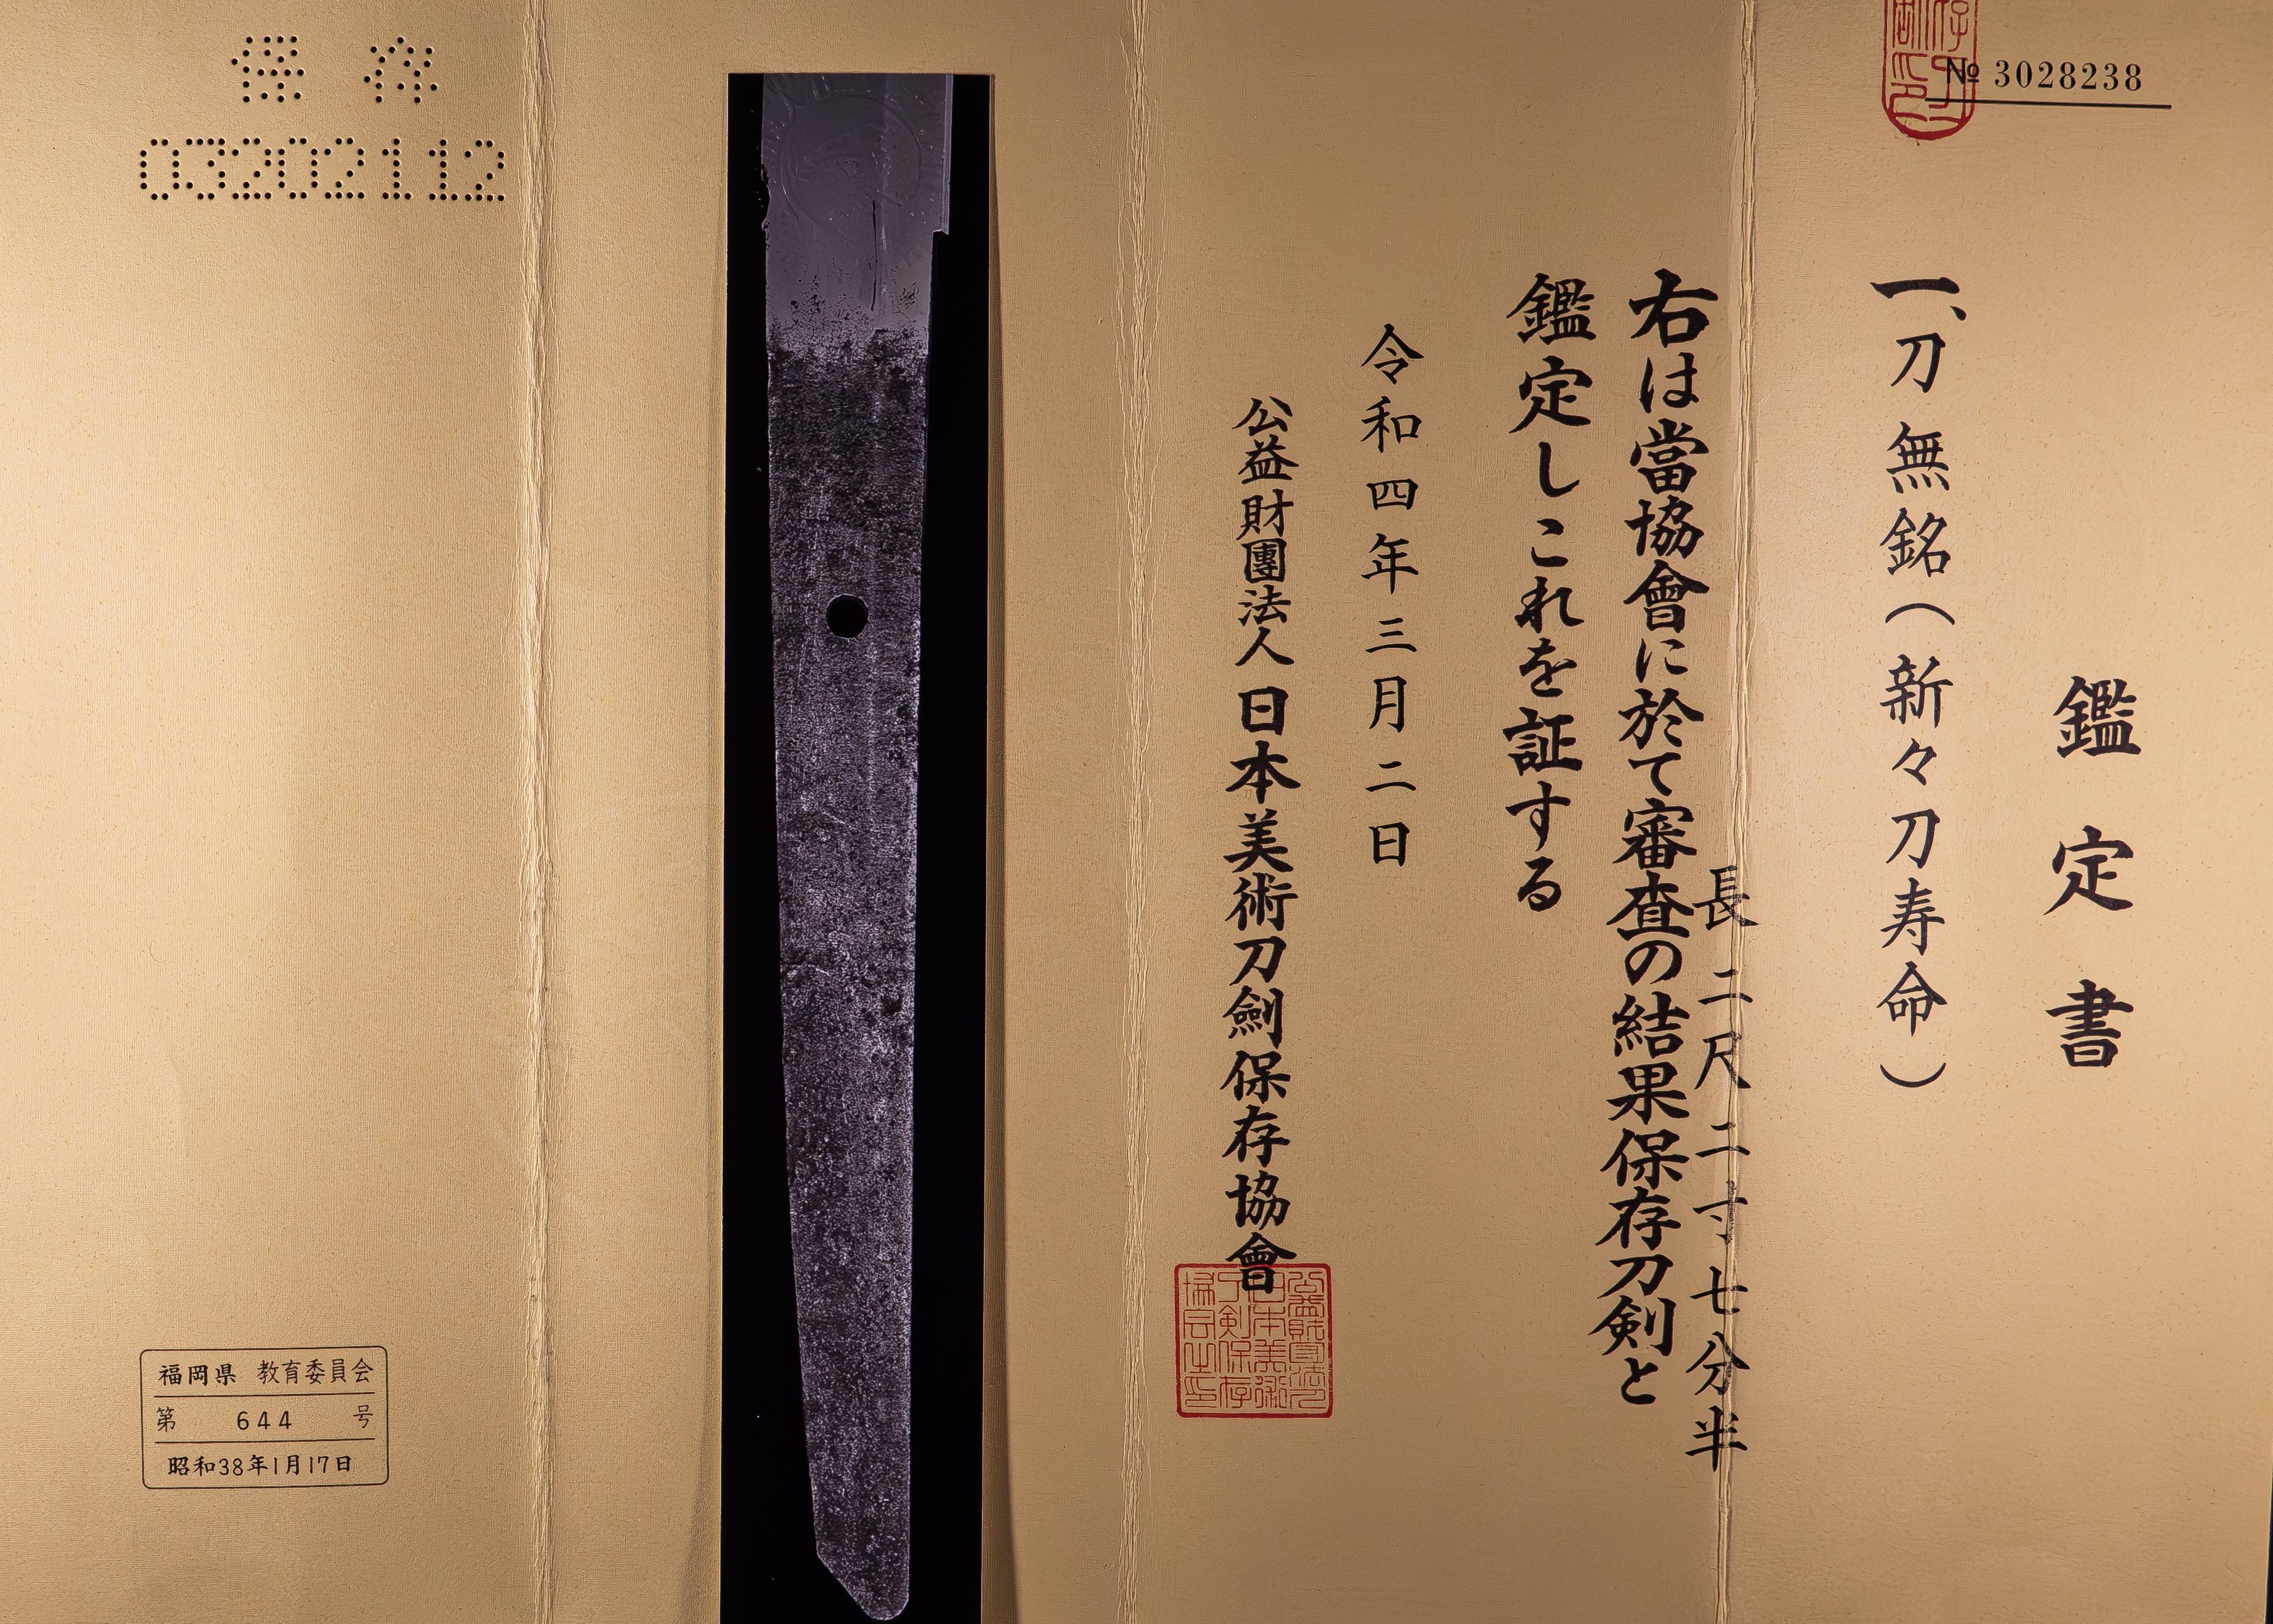 № 3028238
鑑定書
一、刀 無銘（新々刀寿命）
長 二尺二寸七分半
右は當協會に於て審査の結果保存刀剣と
鑑定しこれを証する
令和四年三月二日
公益財團法人 日本美術刀劍保存協會
保存
03202112
福岡県 教育委員会
第 644 号
昭和38年1月17日